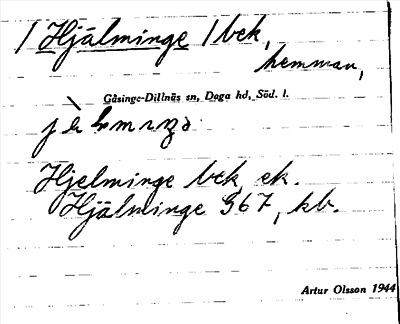 / Hjälminge / bck,
hemman,
Gåsinge-Dillnäs sn, Daga hd, Söd. l.
Hjelminge bck, ek.
Hjälminge G67, kb.
Artur Olsson 1944